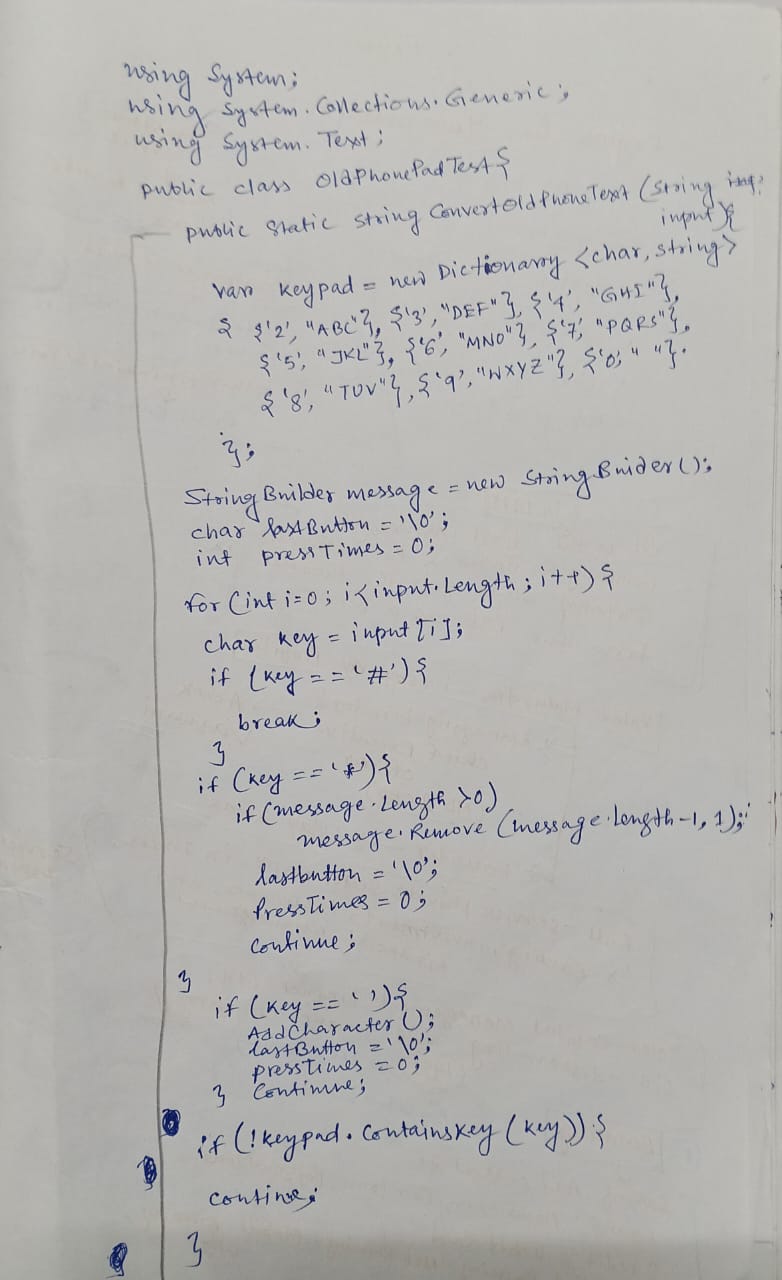 using System;
using System.Collections.Generic;
using System.Text;
public class OldPhonePadTest {
public static string ConvertOldPhoneText (String
input) {
var keypad = new Dictionary <char, string>
{ {'2', "ABC"}, {'3', "DEF"}, {'4', "GHI"},
{'5', "JKL"}, {'6', "MNO"}, {'7', "PQRS"},
{'8', "TUV"}, {'9', "WXYZ"}, {'0', " "}.
};
StringBuilder message = new StringBuider();
char lastButton = '\0';
int pressTimes = 0;
for (int i=0; i<input.Length; i++) {
char key = input[i];
if (key == '#') {
break;
}
if (key == '*') {
if (message.Length >0)
message.Remove (message.Length-1, 1);
lastbutton = '\0';
PressTimes = 0;
continue;
}
if (key == ' ') {
AddCharacter ();
lastButton = '\0';
pressTimes = 0;
} Continue;
if (!keypad.ContainsKey (key)) {
contine;
}